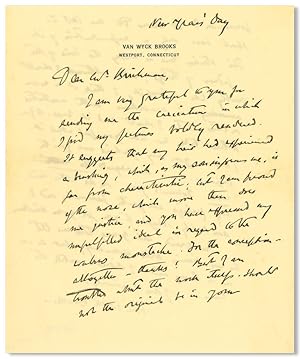 New Year's Day
VAN WYCK BROOKS
WESTPORT, CONNECTICUT
Dear Mr.
I am very grateful to you for
sending me the caricature in which
I find my features boldly rendered.
It suggests that my hair had experienced
a brushing, which, as my conscience tells me, is
far from characteristic; but I am proud
of the nose, which more than does
me justice and you have expressed my
unfulfilled ideal in regard to the
moustache. For the conception
altogether – thanks! But I am
troubled about the work itself. Should
not the original be in your